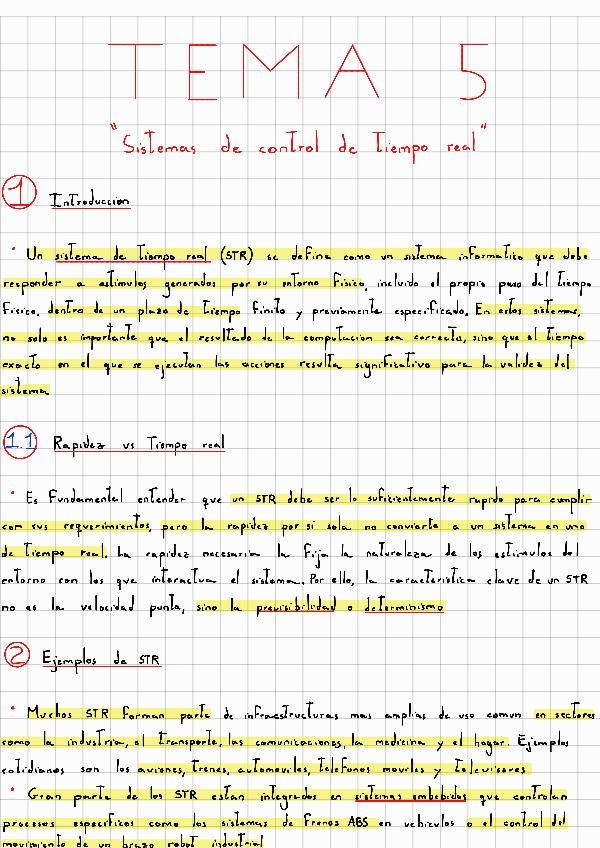 TEMA 5
"Sistemas de control de Tiempo real"
1 Introduccion
· Un sistema de Tiempo real (STR) se define como un sistema informatico que debe
responder a estimulos generados por su entorno fisico, incluido el propio paso del Tiempo
fisico, dentro de un plazo de Tiempo finito y previamente especificado. En estos sistemas,
no solo es importante que el resultado de la computacion sea correcta, sino que el Tiempo
exacto en el que se ejecutan las acciones resulta significativo para la validez del
sistema
1.1 Rapidez vs Tiempo real
· Es Fundamental entender que un STR debe ser lo suficientemente rapido para cumplir
con sus requerimientos, pero la rapidez por si sola no convierte a un sistema en uno
de Tiempo real. La rapidez necesaria la fija la naturaleza de los estimulos del
entorno con los que interactua el sistema. Por ello, la caracteristica clave de un STR
no es la velocidad punta, sino la previsibilidad o determinismo
2 Ejemplos de STR
· Muchos STR forman parte de infraestructuras mas amplias de uso comun en sectores
como la industria, el transporte, las comunicaciones, la medicina y el hogar. Ejemplos
cotidianos son los aviones, Trenes, automoviles, Telefonos moviles y Televisores
· Gran parte de los STR estan integrados en sistemas embebidos que controlan
procesos especificos como los sistemas de Frenos ABS en vehiculos o el control del
movimiento de un brazo robot industrial